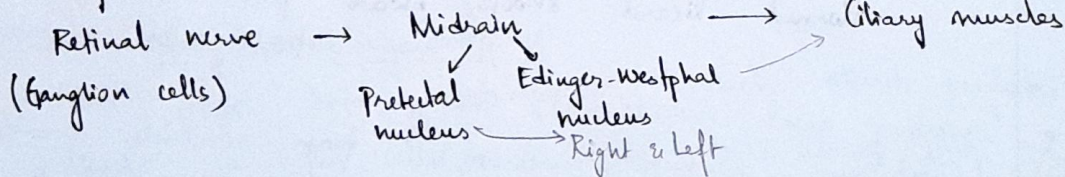 Retinal nerve → Midrain → Ciliary muscles
(Ganglion cells)
Pretectal nucleus
Edinger-Westphal nucleus
Right & Left